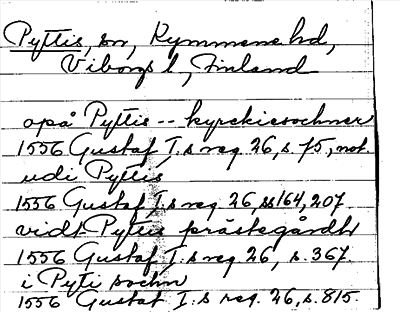 Pyttis, sn, Kymmene hd,
Viborgs l, Finland
opå Pyttis -- kyrckiesochner
1556 Gustaf I.s reg. 26, s. 75, not.
udi Pyttis
1556 Gustaf I.s reg 26, ss 164, 207
vidt Pyttis prästegårdh
1556 Gustaf I.s reg 26, s. 367.
i Pyti sochn
1556 Gustaf I.s reg. 26, s. 815.